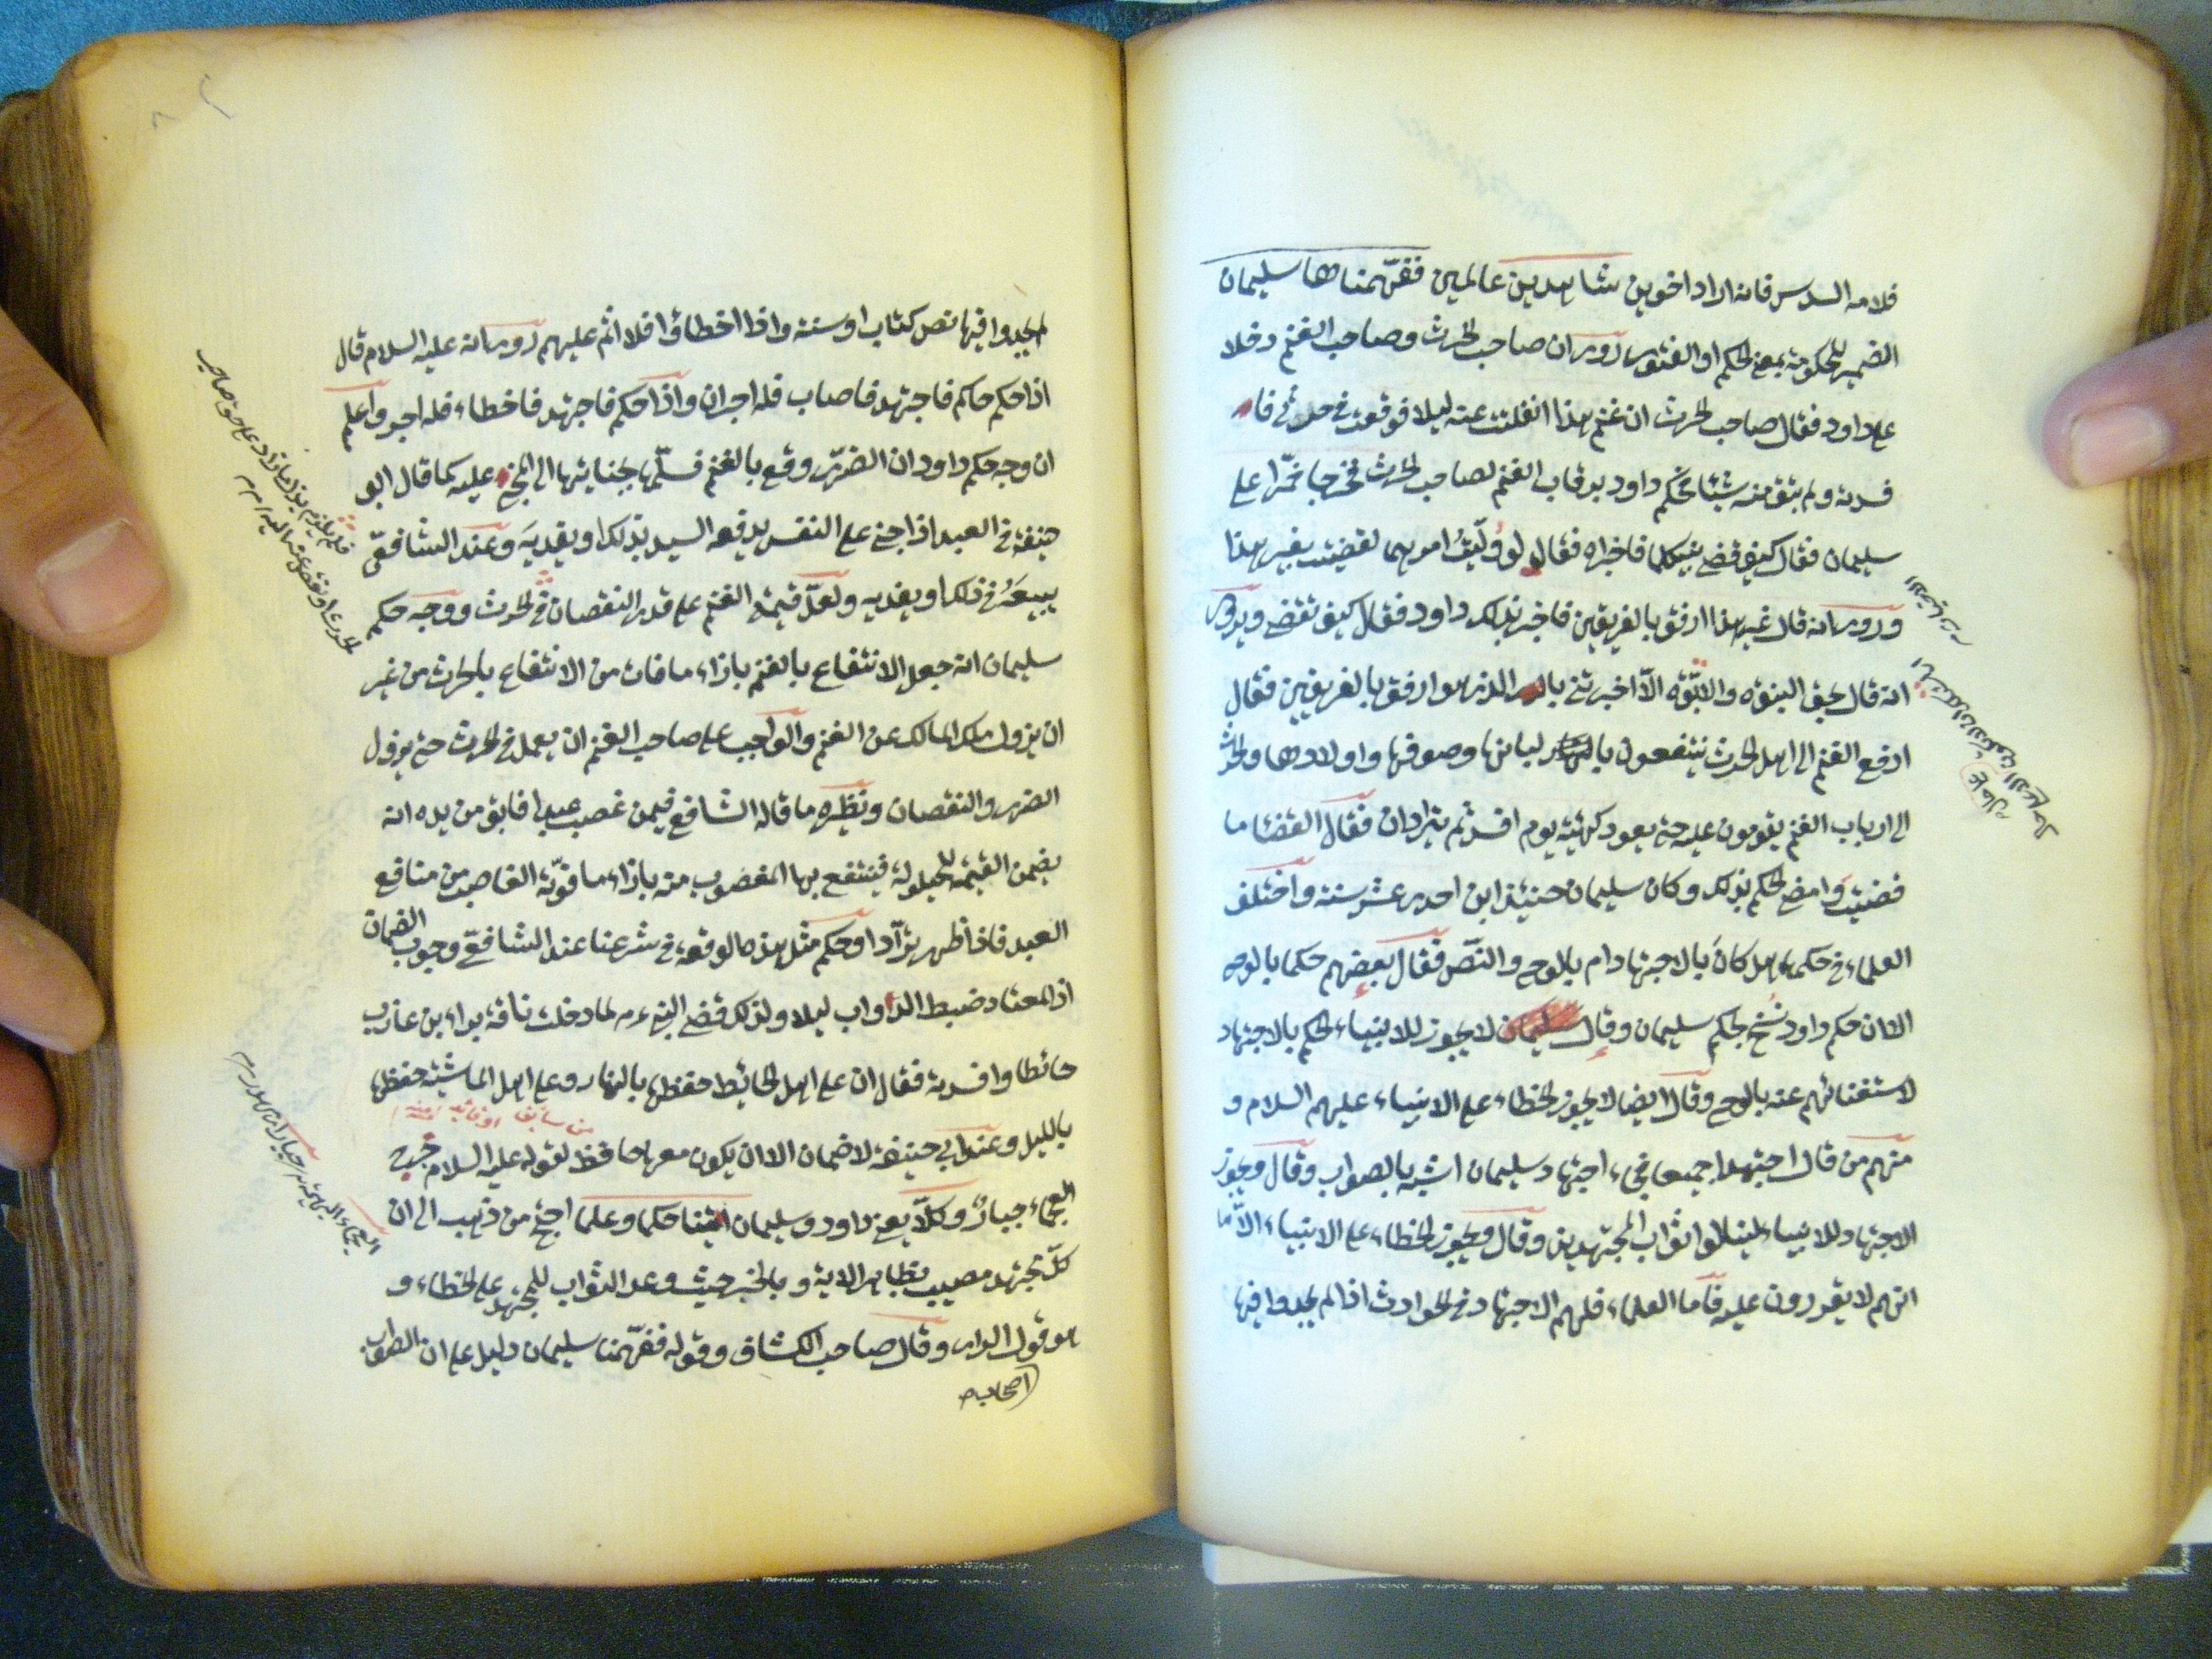 فلامه السدس فانه اراد اخوين شاهدين عالمين ففهّمناها سليمان
الضمير للحكومة بمعنى الحكم او الفتوى روى ان صاحب الحرث وصاحب الغنم دخلا
على داود فقال صاحب الحرث ان غنم هذا انفلتت عنه ليلا فوقعت في حرثي فا
فسدته ولم يتق منه شيئا فحكم داود برقاب الغنم لصاحب الحرث فخرجا فمرّا على
سليمان فقال كيف قضى بينكما فاخبراه فقال لو وُلّيتُ امرهما لقضيت بغير هذا
وروى انه قال غير هذا ارفق بالفريقين فاخبر بذلك داود فقال كيف تقضى ويروى
انه قال بحق النبوّه والابوّه الّا اخبرتنى بالذى هو ارفق بالفريقين فقال
ادفع الغنم الى اهل الحرث ينتفعون بالبانها وصوفها واولادها والحرث
الى ارباب الغنم يقومون عليه حتى يعود كهيئته يوم افسد ثم يترادان فقال القضا ما
قضيتَ وامضى الحكم بذلك وكان سليمان حينئذ ابن احدى عشر سنة واختلف
العلماء في حكمهما هل كانَ بالاجتهاد ام بالوحى والنصّ فقال بعضهم حكما بالوحى
الا ان حكم داود نُسخ بحكم سليمان وقال لا يجوز للانبياء الحكم بالاجتهاد
لاستغنائهم عنه بالوحى وقال ايضا لا يجوز الخطاء على الانبياء عليهم السلام و
منهم من قال اجتهدا جميعا فجاء اجتهاد سليمان اشبه بالصواب وقال ويجوز
الاجتهاد للانبياء لينالوا ثواب المجتهدين وقال ويجوز الخطاء على الانبياء الّا
انهم لا يقررون عليه فاما العلماء فلهم الاجتهاد في الحوادث اذا لم يجدوا فيها
لم يجدوا فيها نص كتاب او سنة واذا اخطاؤا فلا اثم عليهم روى انه عليه السلام قال
اذا حكم حاكم فاجتهد فاصاب فله اجران واذا حكم فاجتهد فاخطاء فله اجر واعلم
ان وجه حكم داود ان الضرر وقع بالغنم فسلّمها بجنايتها الى المجنى عليه كما قال ابو
حنيفة في العبد اذا جنى على النفس يدفعه السيد بذلك او يفديَه وعند الشافعىّ
يبيعَهُ في ذلك او يفديه ولعلّ قيمة الغنم على قدر النقصان في الحرث ووجه حكم
سليمان انه جعل الانتفاع بالغنم بازاء ما فات من الانتفاع بالحرث من غير
ان يزول ملك المالك عن الغنم والواجب على صاحب الغنم ان يعمل في الحرث حتى يزول
الضرر والنقصان ونظيره ما قاله الشافعى فيمن غصب عبدا فابق من يده انه
يضمن القيمة للحيلولة فينتفع بها المغصوب منه بازاء ما فوّته الغاصب من منافع
العبد فاذا ظهر ترآدا وحكم مثل هذه الوقعة في شرعنا عند الشافعىّ وجوب الضمان
اذ المعتاد ضبط الدواب ليلا ولذلك قضى النبىء م لما دخلت ناقة براء بن عازب
حائطا وافسدته فقال ان على اهل الحائط حفظها بالنهار وعلى اهل الماشية حفظها
من سائق او قائد منه
بالليل وعند ابى حنيفة لا ضمان الا ان يكون معها حافظ لقوله عليه السلام جرح
العجماء جبارٌ وكلّا يعنى داود وسليمان آتينا حكما وعلما احتج من ذهب الى ان
كلّ مجتهد مصيب بظاهر الاية وبالخبر حيث وعد الثواب للمجتهد على الخطاء و
هو قول الراى وقال صاحب الكشاف وقوله ففهّمنا سليمان دليل على ان الصواب